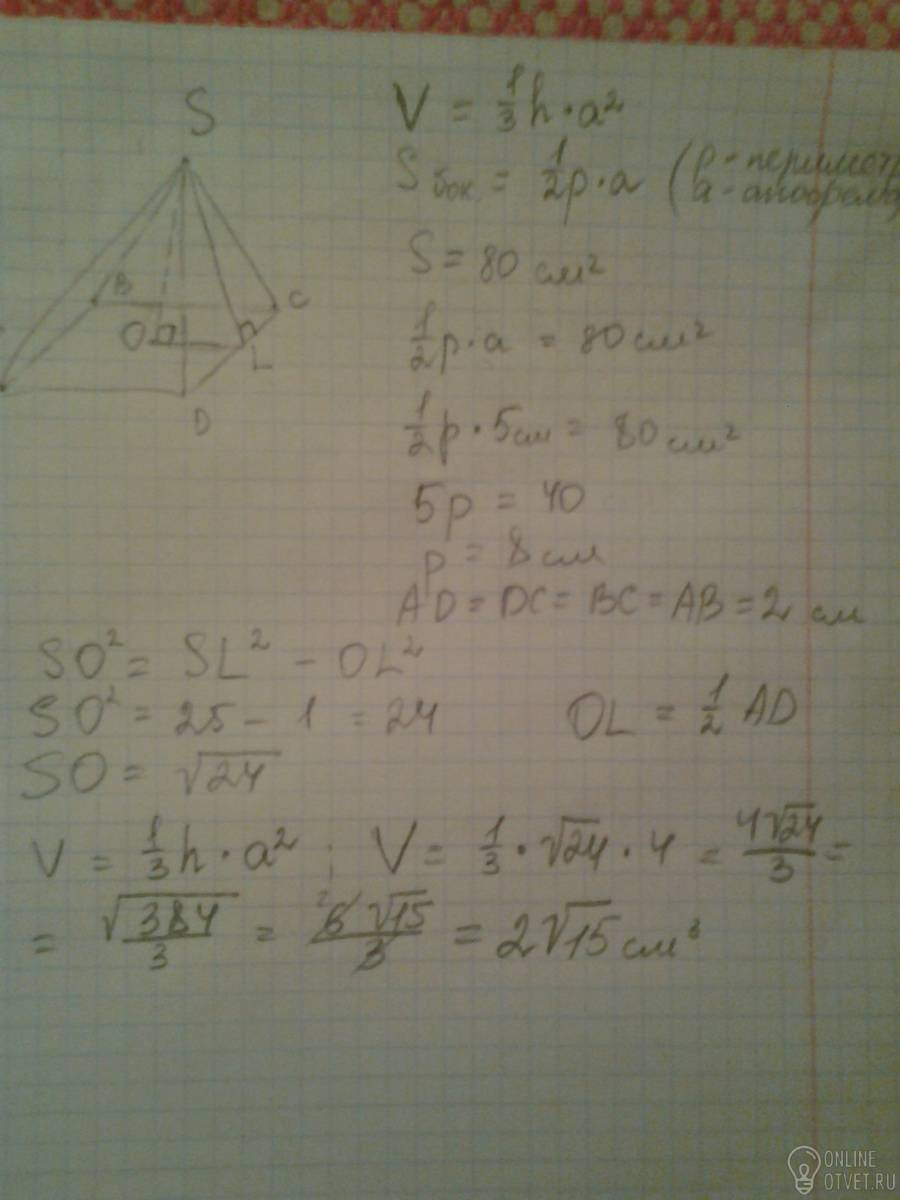 S
V = 1/3 h · a²
S бок = 1/2 p · a (p - периметр
a - апофема
B
C
O
L
D
S = 80 см²
1/2 p · a = 80 см²
1/2 p · 5 см = 80 см²
5p = 40
p = 8 см
AD = DC = BC = AB = 2 см
SO² = SL² - OL²
SO² = 25 - 1 = 24 OL = 1/2 AD
SO = √24
V = 1/3 h · a² ; V = 1/3 · √24 · 4 = 4√24/3 =
= √384/3 = 6√15/3 = 2√15 см³
ONLINE
OTVET.RU